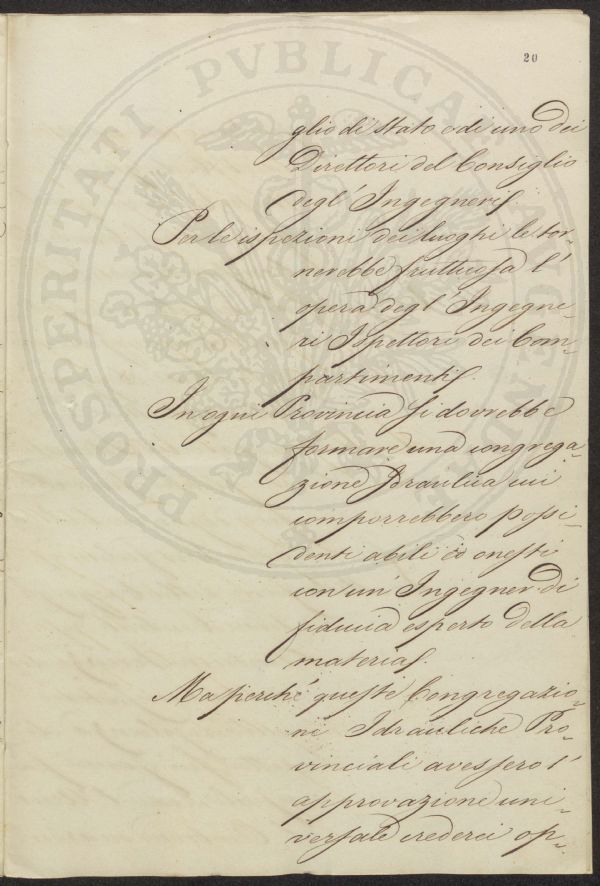 20
glio di Stato o di uno dei
Direttori del Consiglio
degl' Ingegneri.
Per le ispezioni dei luoghi le tor-
nerebbe fruttuosa l'
opera degl' Ingegne-
ri Ispettori dei Com-
partimenti.
In ogni Provincia si dovrebbe
formare una congrega-
zione Idraulica cui
comporrebbero possi-
denti abili ed onesti
con un' Ingegner di
fiducia esperto della
materia.
Ma perché queste Congregazio-
ni Idrauliche Pro-
vinciali avessero l'
approvazione uni-
versale crederei op-
PROSPERITATI PVBLICAE AVGENDAE